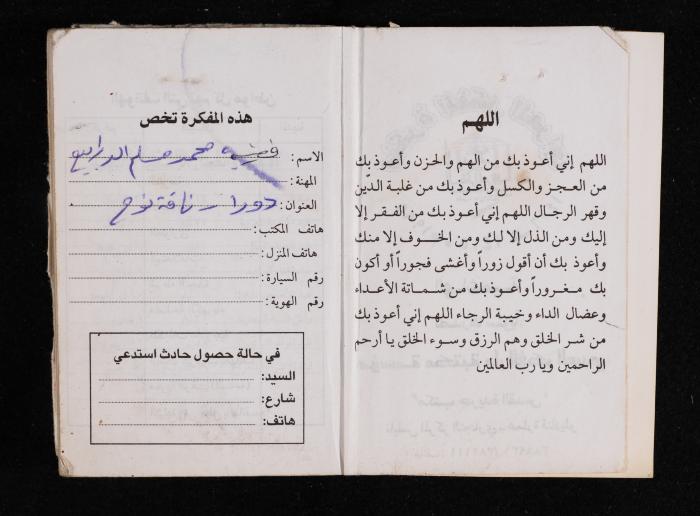 اللهم
اللهم إني أعوذ بك من الهم والحزن وأعوذ بك
من العجز والكسل وأعوذ بك من غلبة الدّين
وقهر الرجال اللهم إني أعوذ بك من الفقر إلا
إليك ومن الذل إلا لك ومن الخوف إلا منك
وأعوذ بك أن أقول زوراً وأغشى فجوراً أو أكون
بك مغروراً وأعوذ بك من شماتة الأعداء
وعضال الداء وخيبة الرجاء اللهم إني أعوذ بك
من شر الخلق وهم الرزق وسوء الخلق يا أرحم
الراحمين ويا رب العالمين
هذه المفكرة تخص
الاسم: محمد مسلم الدرابيع
المهنة:
العنوان: دورا
هاتف المكتب:
هاتف المنزل:
رقم السيارة:
رقم الهوية:
في حالة حصول حادث استدعي
السيد:
شارع:
هاتف: